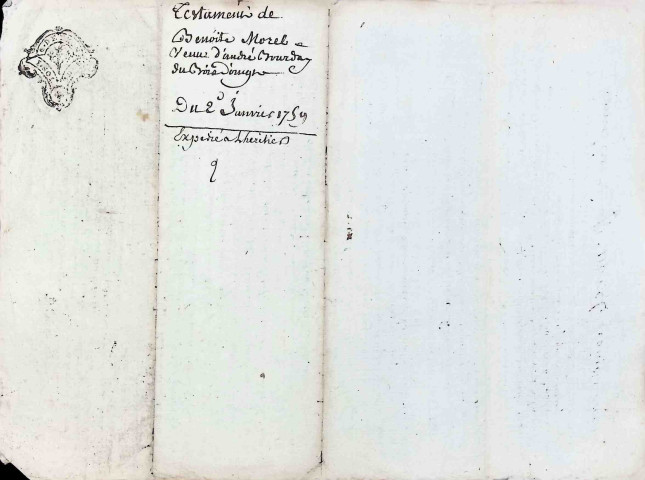 Testament de
Benoite Morel
Veuve d'andré Bourday
du Bois d'oingt
Du 2e Janvier 1759
Expedié a Lheritier